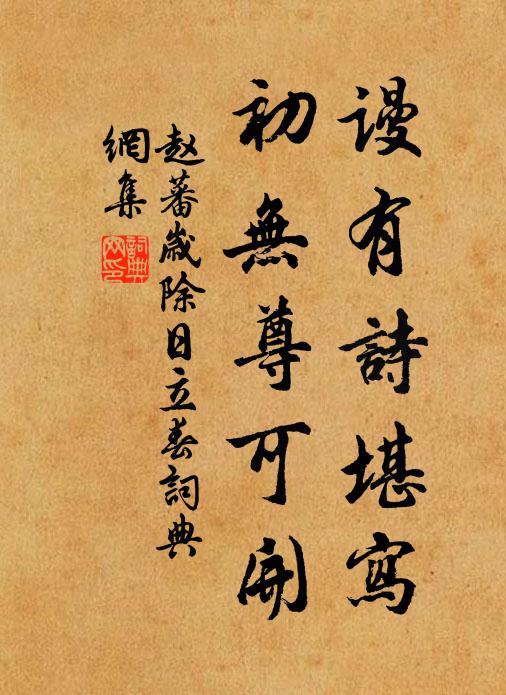 謾有詩堪寫
初無尊可開
赵蕃歲除日立春詞典
網集
詞典
网印